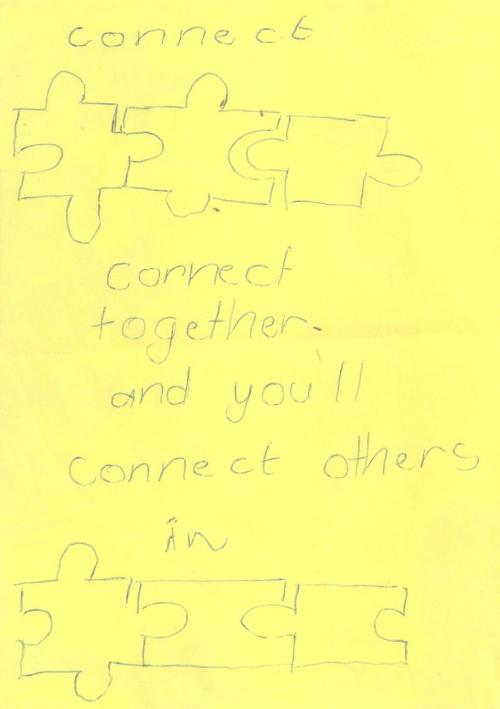 connect
connect
together.
and you'll
connect others
in